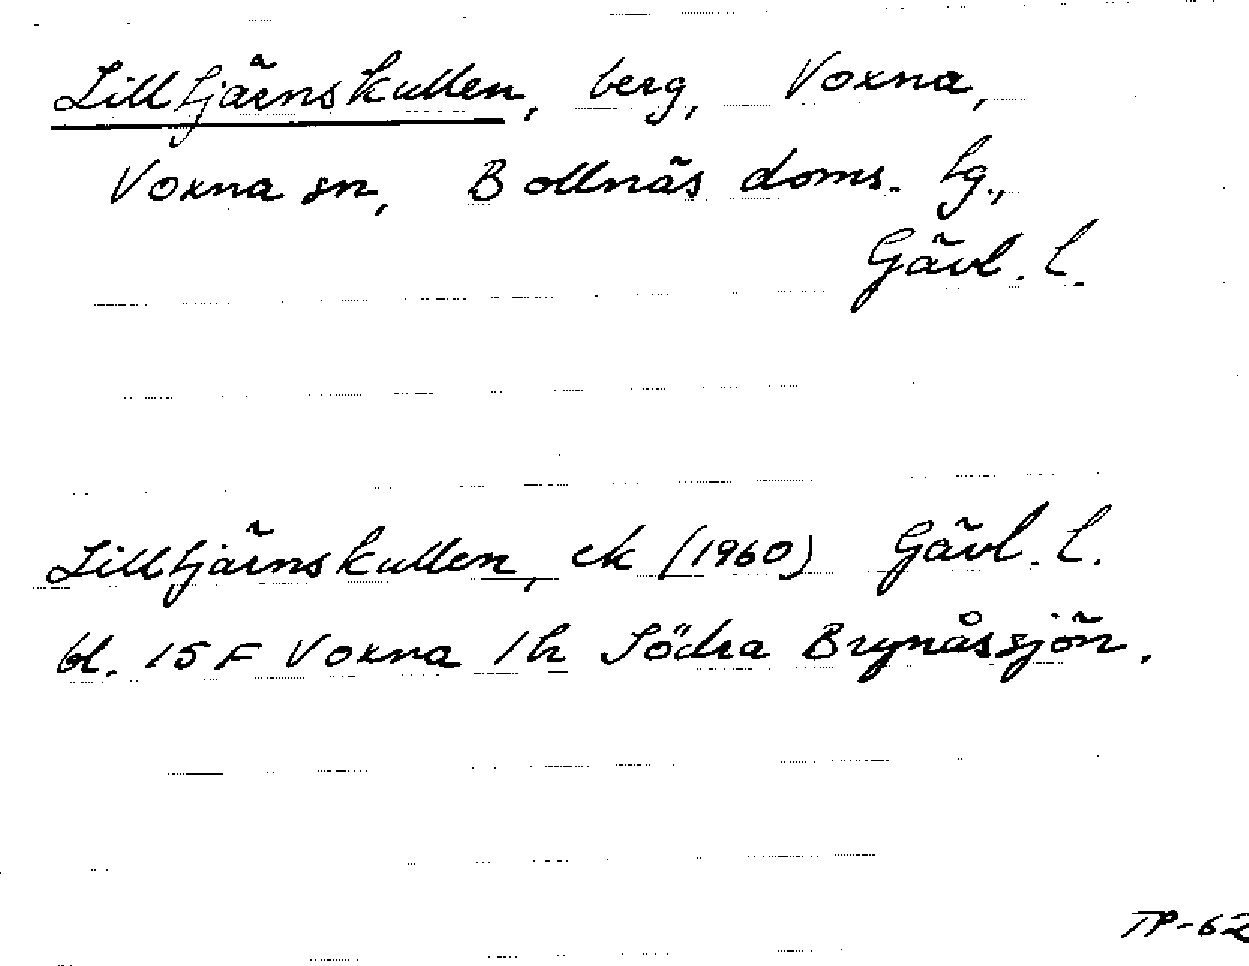 Lilltjärnskullen, berg, Voxna,
Voxna sn, Bollnäs doms. tg.,
Gävl. l.
Lilltjärnskullen, ek (1960) Gävl. l.
bl. 15 F Voxna 1h Södra Brynåssjön.
TP-62